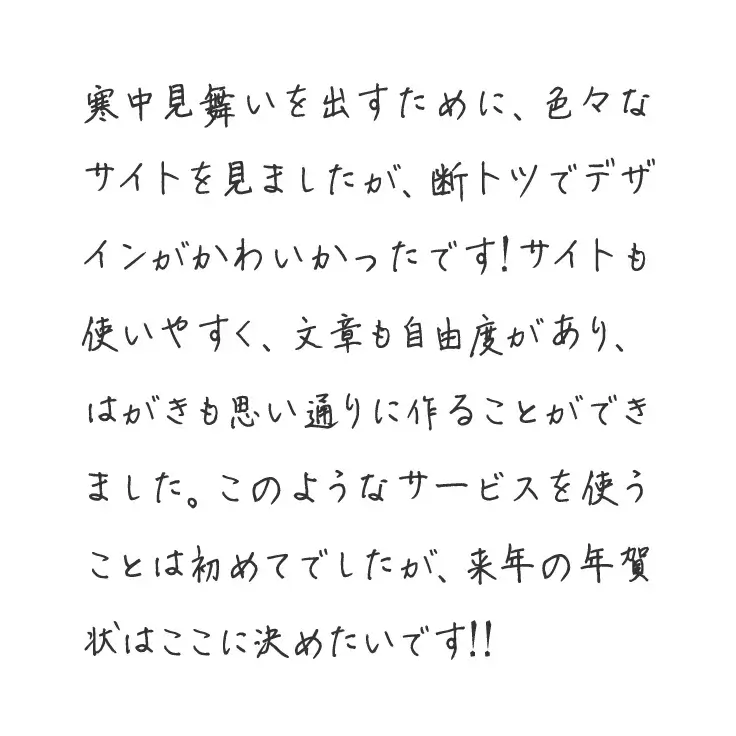 寒中見舞いを出すために、色々な
サイトを見ましたが、断トツでデザ
インがかわいかったです!サイトも
使いやすく、文章も自由度があり、
はがきも思い通りに作ることができ
ました。このようなサービスを使う
ことは初めてでしたが、来年の年賀
状はここに決めたいです!!